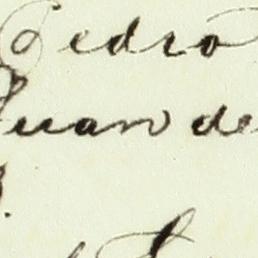 Pedro
Juan de